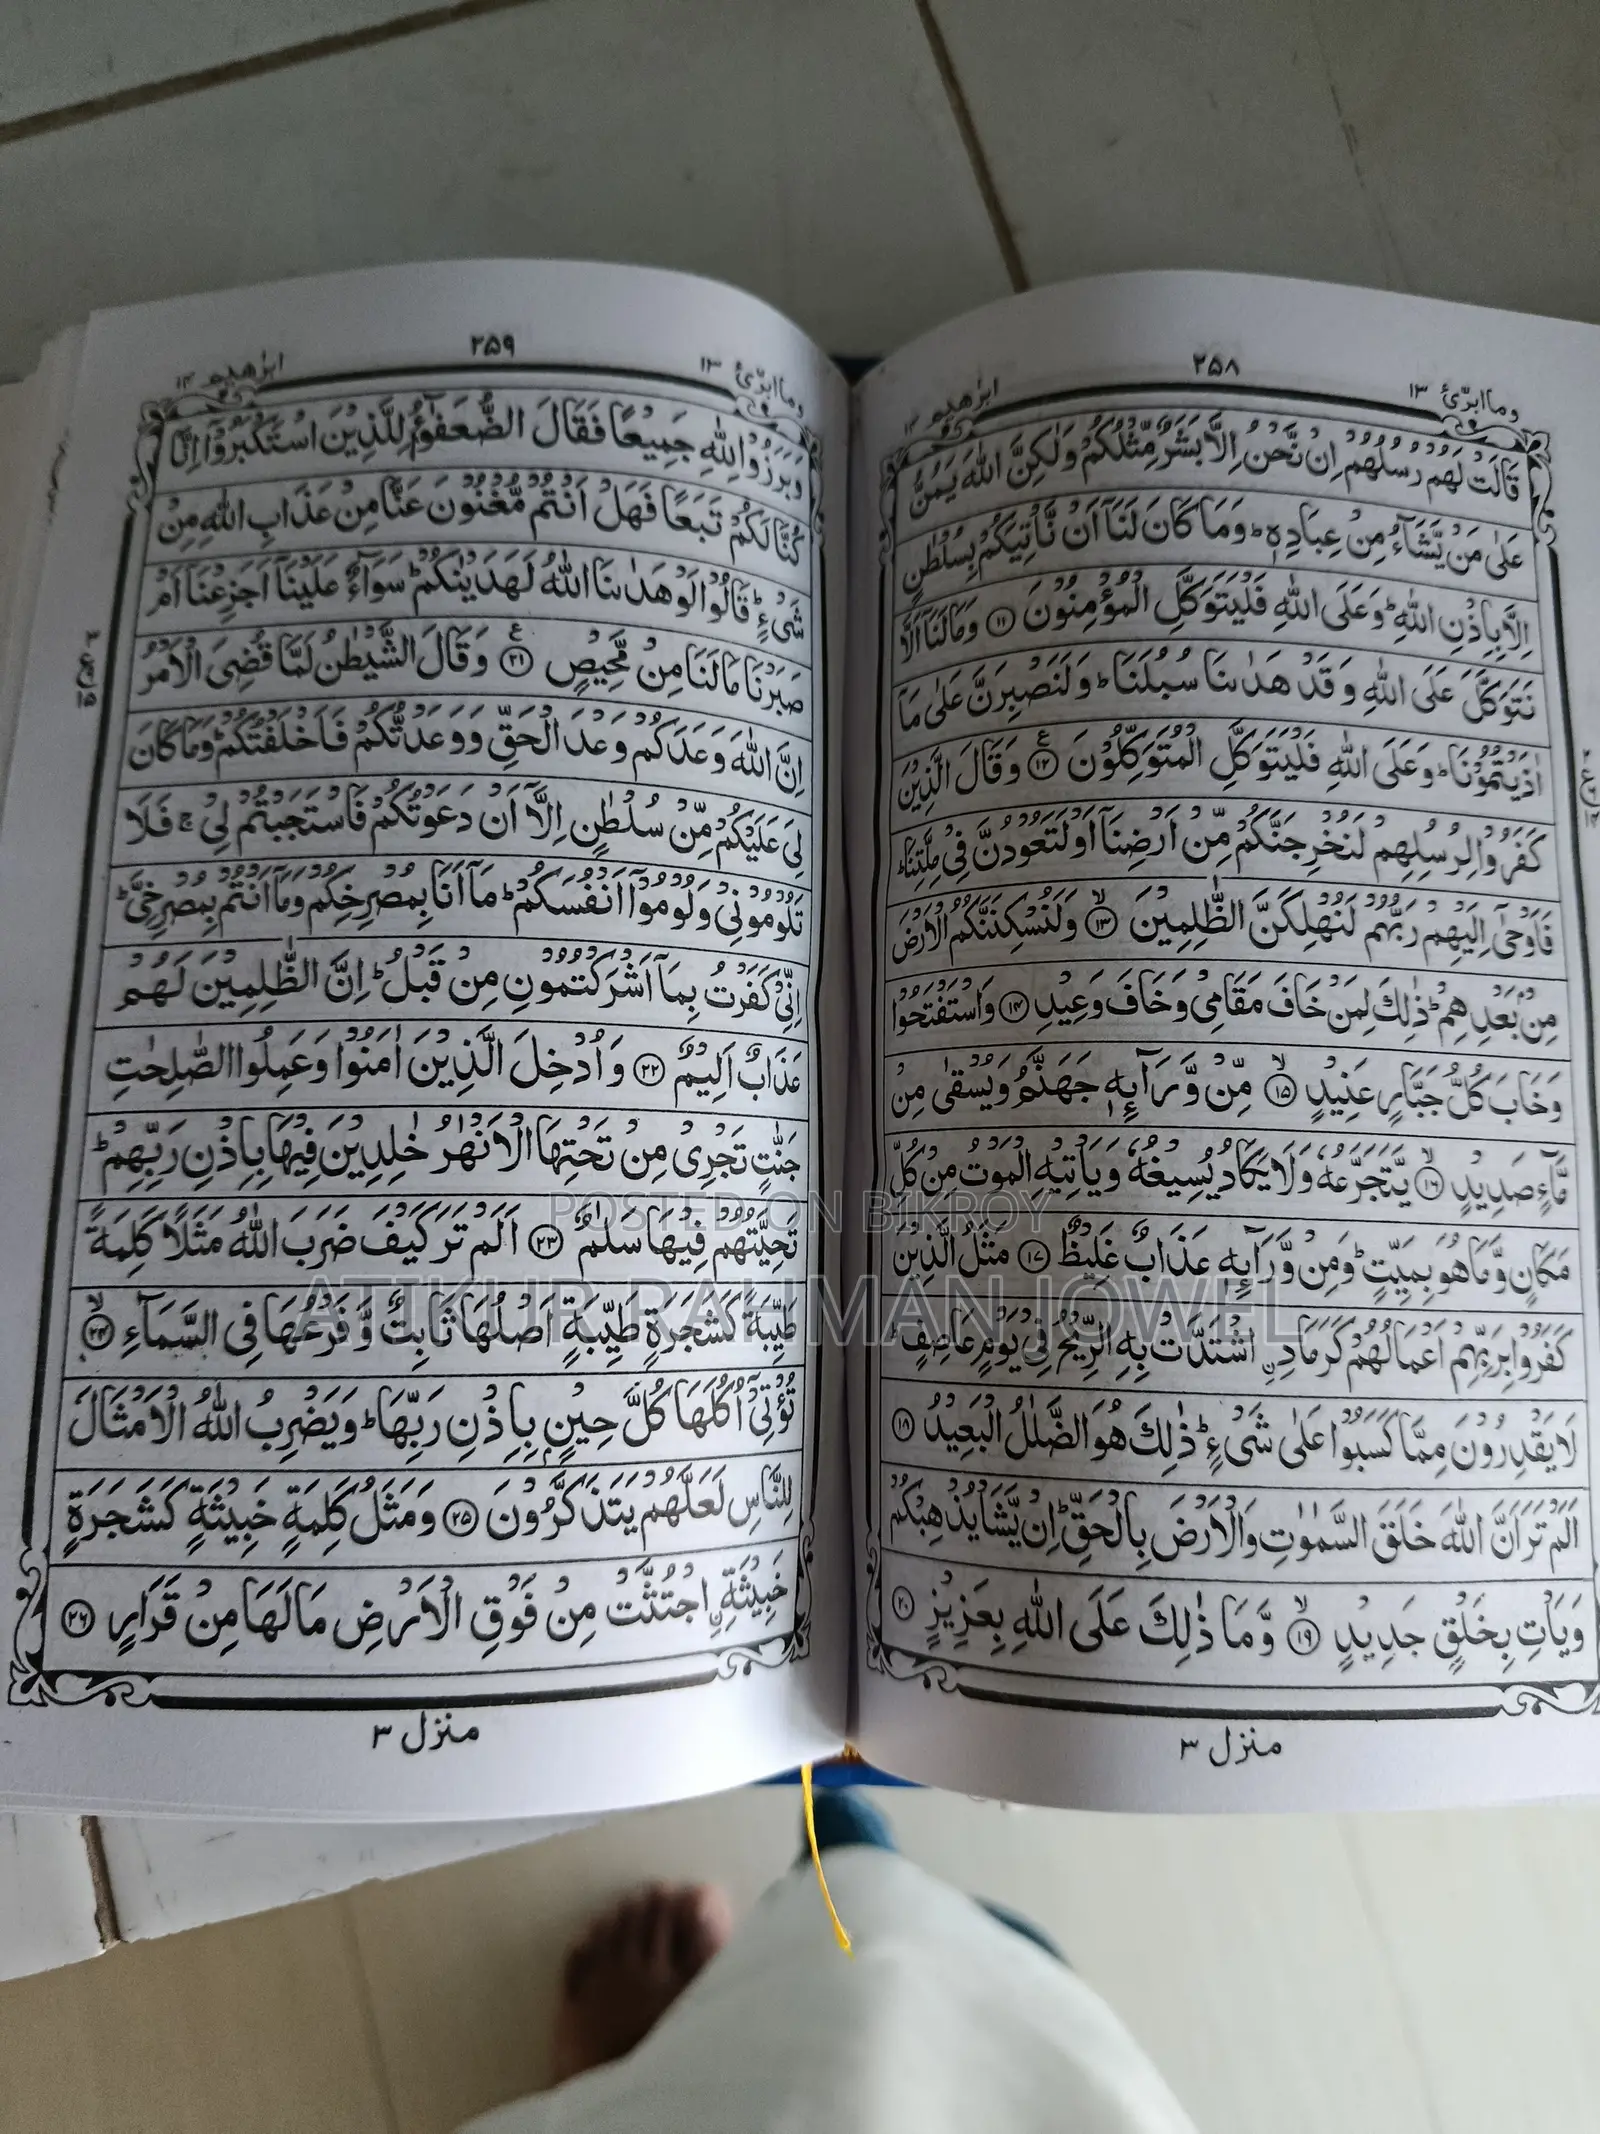 وماابرئ ١٣
٢٥٨
ابرٰهيم ١٤
قَالَتْ لَهُمْ رُسُلُهُمْ اِنْ نَّحْنُ اِلَّا بَشَرٌ مِّثْلُكُمْ وَلٰكِنَّ اللّٰهَ يَمُنُّ
عَلٰى مَنْ يَّشَآءُ مِنْ عِبَادِهٖ ؕ وَمَا كَانَ لَنَآ اَنْ نَّاْتِيَكُمْ بِسُلْطٰنٍ
اِلَّا بِاِذْنِ اللّٰهِ ؕ وَعَلَى اللّٰهِ فَلْيَتَوَكَّلِ الْمُؤْمِنُوْنَ ١١ وَمَا لَنَآ اَلَّا
نَتَوَكَّلَ عَلَى اللّٰهِ وَقَدْ هَدٰىنَا سُبُلَنَا ؕ وَلَنَصْبِرَنَّ عَلٰى مَآ
اٰذَيْتُمُوْنَا ؕ وَعَلَى اللّٰهِ فَلْيَتَوَكَّلِ الْمُتَوَكِّلُوْنَ ١٢ وَقَالَ الَّذِيْنَ
كَفَرُوْا لِرُسُلِهِمْ لَنُخْرِجَنَّكُمْ مِّنْ اَرْضِنَآ اَوْ لَتَعُوْدُنَّ فِيْ مِلَّتِنَا ؕ
فَاَوْحٰٓى اِلَيْهِمْ رَبُّهُمْ لَنُهْلِكَنَّ الظّٰلِمِيْنَ ١٣ وَلَنُسْكِنَنَّكُمُ الْاَرْضَ
مِنْۢ بَعْدِهِمْ ؕ ذٰلِكَ لِمَنْ خَافَ مَقَامِيْ وَخَافَ وَعِيْدِ ١٤ وَاسْتَفْتَحُوْا
وَخَابَ كُلُّ جَبَّارٍ عَنِيْدٍ ١٥ مِّنْ وَّرَآئِهٖ جَهَنَّمُ وَيُسْقٰى مِنْ
مَّآءٍ صَدِيْدٍ ١٦ يَّتَجَرَّعُهٗ وَلَا يَكَادُ يُسِيْغُهٗ وَيَاْتِيْهِ الْمَوْتُ مِنْ كُلِّ
مَكَانٍ وَّمَا هُوَ بِمَيِّتٍ ؕ وَمِنْ وَّرَآئِهٖ عَذَابٌ غَلِيْظٌ ١٧ مَثَلُ الَّذِيْنَ
كَفَرُوْا بِرَبِّهِمْ اَعْمَالُهُمْ كَرَمَادِ ِۨاشْتَدَّتْ بِهِ الرِّيْحُ فِيْ يَوْمٍ عَاصِفٍ ؕ
لَا يَقْدِرُوْنَ مِمَّا كَسَبُوْا عَلٰى شَيْءٍ ؕ ذٰلِكَ هُوَ الضَّلٰلُ الْبَعِيْدُ ١٨
اَلَمْ تَرَ اَنَّ اللّٰهَ خَلَقَ السَّمٰوٰتِ وَالْاَرْضَ بِالْحَقِّ ؕ اِنْ يَّشَاْ يُذْهِبْكُمْ
وَيَاْتِ بِخَلْقٍ جَدِيْدٍ ١٩ وَّمَا ذٰلِكَ عَلَى اللّٰهِ بِعَزِيْزٍ ٢٠
منزل ٣
وماابرئ ١٣
٢٥٩
ابرٰهيم ١٤
وَبَرَزُوْا لِلّٰهِ جَمِيْعًا فَقَالَ الضُّعَفٰٓؤُا لِلَّذِيْنَ اسْتَكْبَرُوْٓا اِنَّا
كُنَّا لَكُمْ تَبَعًا فَهَلْ اَنْتُمْ مُّغْنُوْنَ عَنَّا مِنْ عَذَابِ اللّٰهِ مِنْ
شَيْءٍ ؕ قَالُوْا لَوْ هَدٰىنَا اللّٰهُ لَهَدَيْنٰكُمْ ؕ سَوَآءٌ عَلَيْنَآ اَجَزِعْنَآ اَمْ
صَبَرْنَا مَا لَنَا مِنْ مَّحِيْصٍ ٢١ وَقَالَ الشَّيْطٰنُ لَمَّا قُضِيَ الْاَمْرُ
اِنَّ اللّٰهَ وَعَدَكُمْ وَعْدَ الْحَقِّ وَوَعَدْتُّكُمْ فَاَخْلَفْتُكُمْ ؕ وَمَا كَانَ
لِيَ عَلَيْكُمْ مِّنْ سُلْطٰنٍ اِلَّآ اَنْ دَعَوْتُكُمْ فَاسْتَجَبْتُمْ لِيْ ۚ فَلَا
تَلُوْمُوْنِيْ وَلُوْمُوْٓا اَنْفُسَكُمْ ؕ مَآ اَنَا بِمُصْرِخِكُمْ وَمَآ اَنْتُمْ بِمُصْرِخِيَّ ؕ
اِنِّيْ كَفَرْتُ بِمَآ اَشْرَكْتُمُوْنِ مِنْ قَبْلُ ؕ اِنَّ الظّٰلِمِيْنَ لَهُمْ
عَذَابٌ اَلِيْمٌ ٢٢ وَاُدْخِلَ الَّذِيْنَ اٰمَنُوْا وَعَمِلُوا الصّٰلِحٰتِ
جَنّٰتٍ تَجْرِيْ مِنْ تَحْتِهَا الْاَنْهٰرُ خٰلِدِيْنَ فِيْهَا بِاِذْنِ رَبِّهِمْ ؕ
تَحِيَّتُهُمْ فِيْهَا سَلٰمٌ ٢٣ اَلَمْ تَرَ كَيْفَ ضَرَبَ اللّٰهُ مَثَلًا كَلِمَةً
طَيِّبَةً كَشَجَرَةٍ طَيِّبَةٍ اَصْلُهَا ثَابِتٌ وَّفَرْعُهَا فِي السَّمَآءِ ٢٤
تُؤْتِيْٓ اُكُلَهَا كُلَّ حِيْنٍۭ بِاِذْنِ رَبِّهَا ؕ وَيَضْرِبُ اللّٰهُ الْاَمْثَالَ
لِلنَّاسِ لَعَلَّهُمْ يَتَذَكَّرُوْنَ ٢٥ وَمَثَلُ كَلِمَةٍ خَبِيْثَةٍ كَشَجَرَةٍ
خَبِيْثَةِ ِۨاجْتُثَّتْ مِنْ فَوْقِ الْاَرْضِ مَا لَهَا مِنْ قَرَارٍ ٢٦
منزل ٣
POSTED ON BIKROY
ATIKUR RAHMAN JOWEL